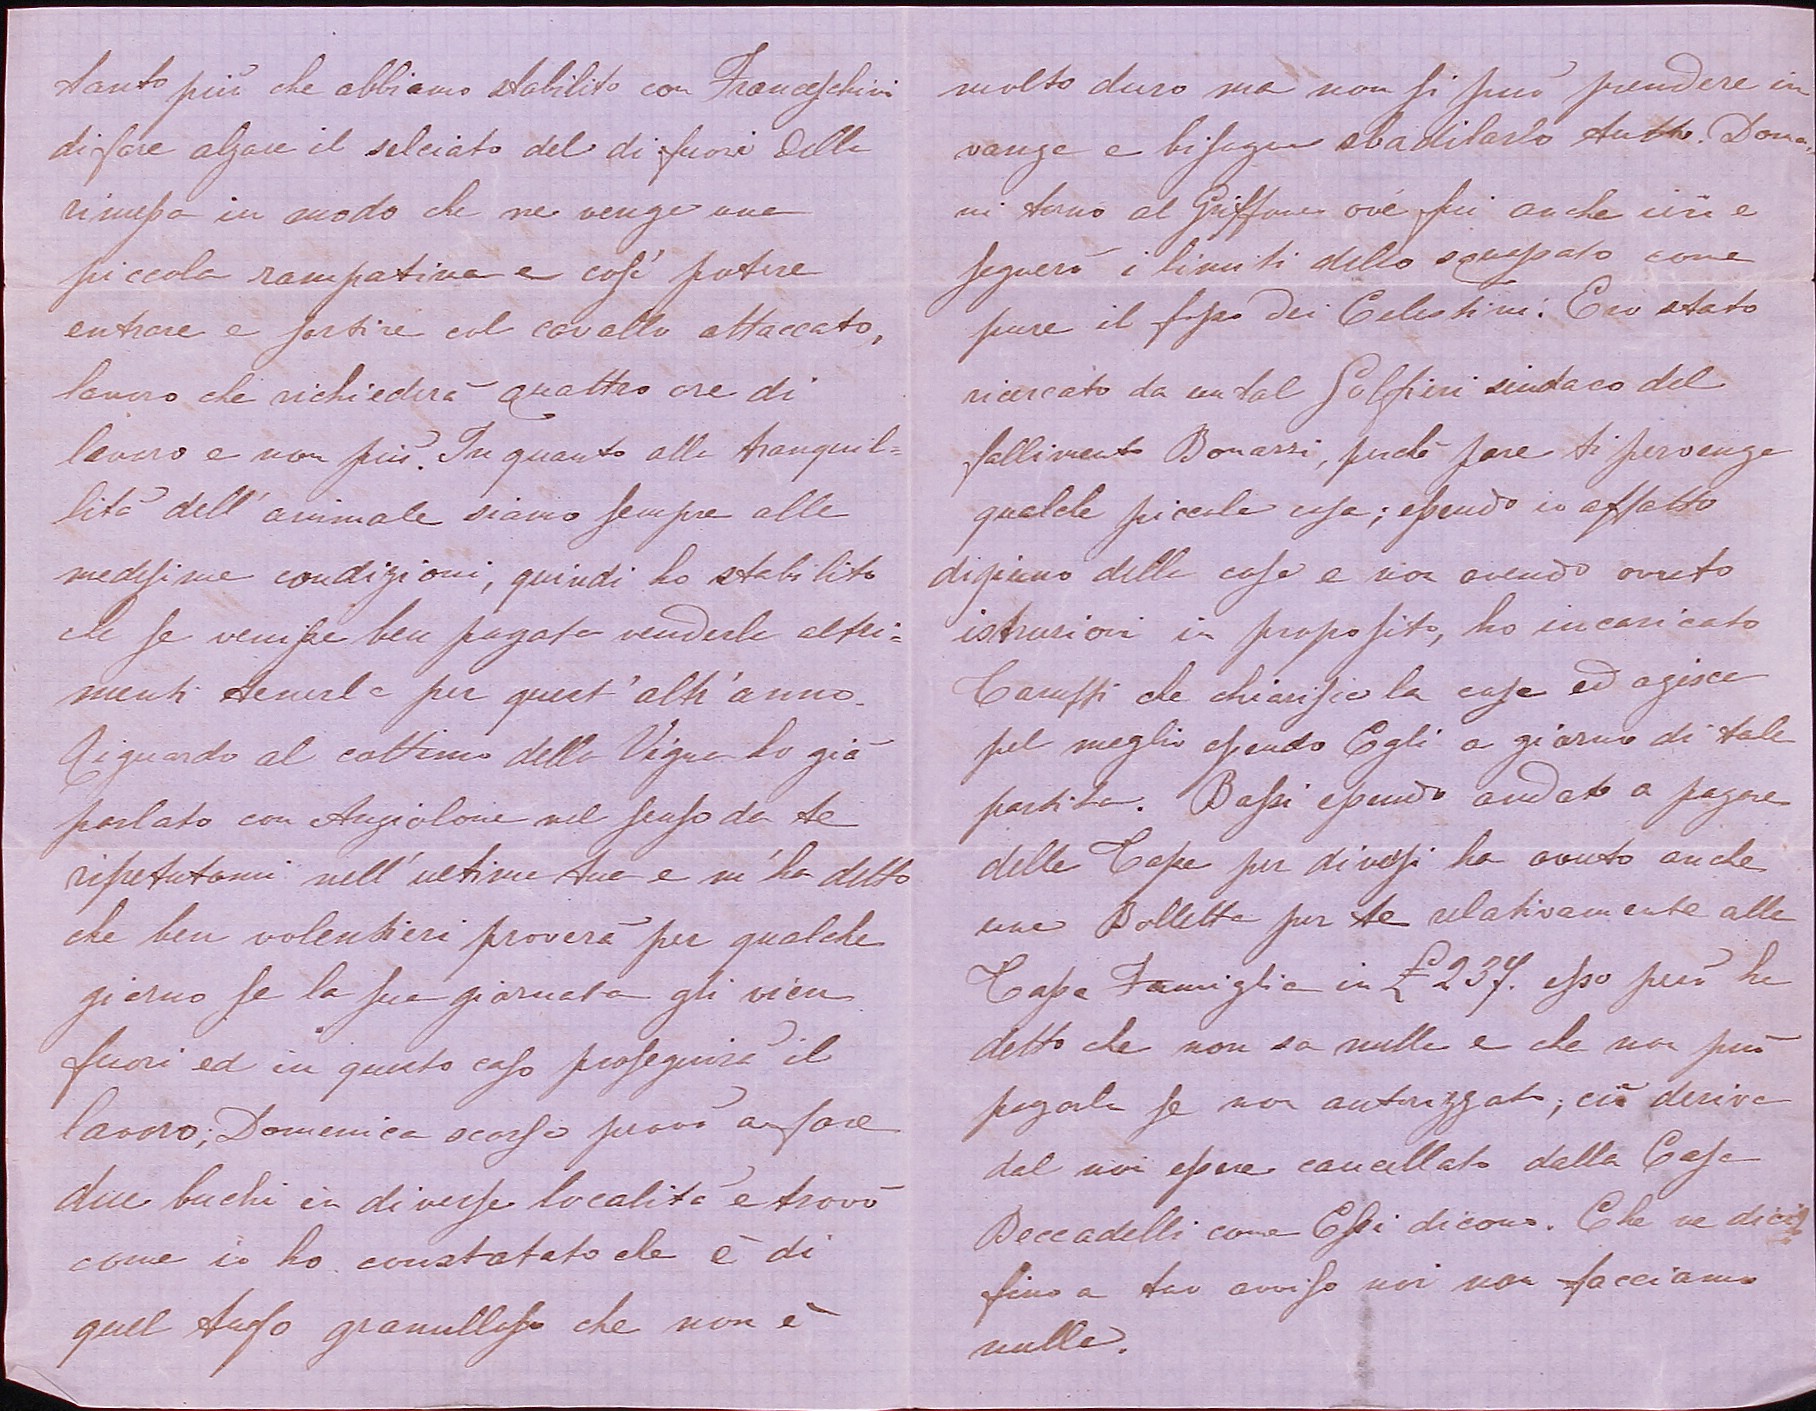 tanto più che abbiamo stabilito con Franceschini
di fare alzare il selciato del di fuori della
rimessa in modo che ne venga una
piccola rampatina e così potere
entrare e sortire col cavallo attaccato,
lavoro che richiederà quattro ore di
lavoro e non più. In quanto alla tranquil=
lità dell'animale siamo sempre alle
medesime condizioni, quindi ho stabilito
che se venisse ben pagata venderla altri=
menti tenerla per quest'altr'anno.
Riguardo al cottimo della Vigna ho già
parlato con Angiolone nel senso da te
ripetutami nell'ultima tua e m'ha detto
che ben volentieri proverà per qualche
giorno se la sua giornata gli vien
fuori ed in questo caso proseguirà il
lavoro; Domenica scorsa provò a fare
due buchi in diverse località e trovò
come io ho constatato che è di
quel tufo granulloso che non è
molto duro ma non si può prendere in
vanga e bisogna sbadilarlo tutto. Doma,
ni torno al Griffone ove fui anche ieri e
segnerò i limiti dello scassato come
pure il fosso dei Celestini. Ero stato
ricercato da un tal Golfieri sindaco del
fallimento Bonazzi, perchè pare ti pervenga
qualche piccola cosa; essendo io affatto
digiuno della cosa e non avendo avuto
istruzioni in proposito, ho incaricato
Taruffi che chiarisca la cosa ed agisca
pel meglio essendo Egli a giorno di tale
partita. Bassi essendo andato a pagare
delle Tasse per diversi ha avuto anche
una Bolletta per te relativamente alla
Tassa Famiglia in £ 237. esso però ha
detto che non sa nulla e che non può
pagarla se non autorizzato; ciò deriva
dal non essere cancellato dalla Casa
Beccadelli come Essi dicono. Che ne dici?
fino a tuo avviso noi non facciamo
nulla.